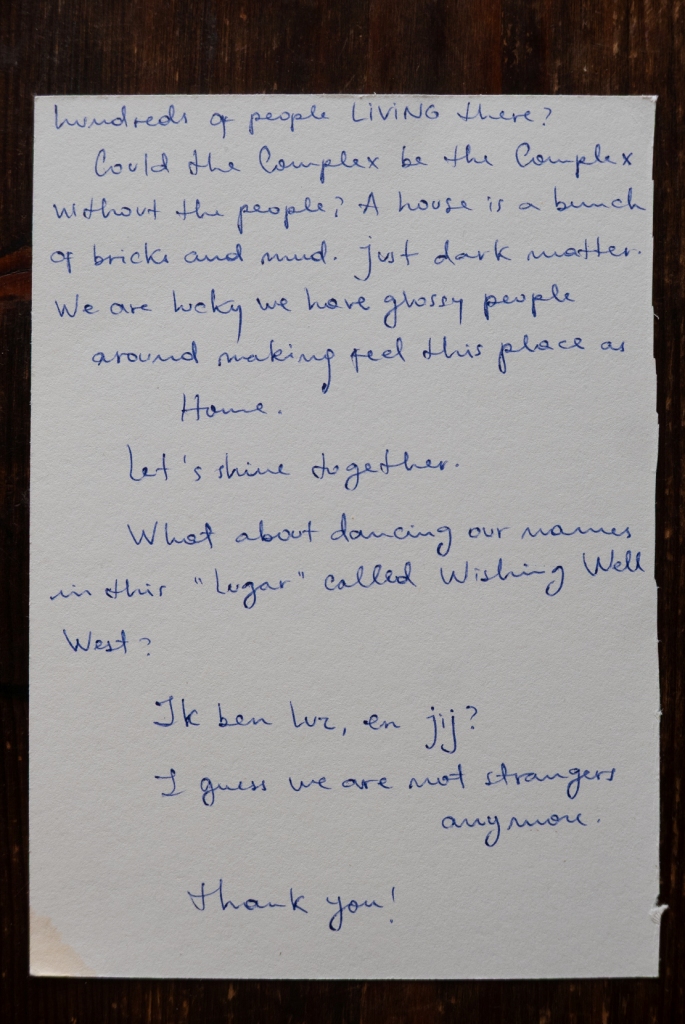 hundreds of people LiViNG there?
Could the Complex be the Complex
without the people? A house is a bunch
of bricks and mud. Just dark matter.
We are lucky we have glossy people
around making feel this place as
Home.
Let's shine together.
What about dancing our names
in this "lugar" called Wishing Well
West?
Ik ben Luz, en jij?
I guess we are not strangers
anymore.
Thank you!